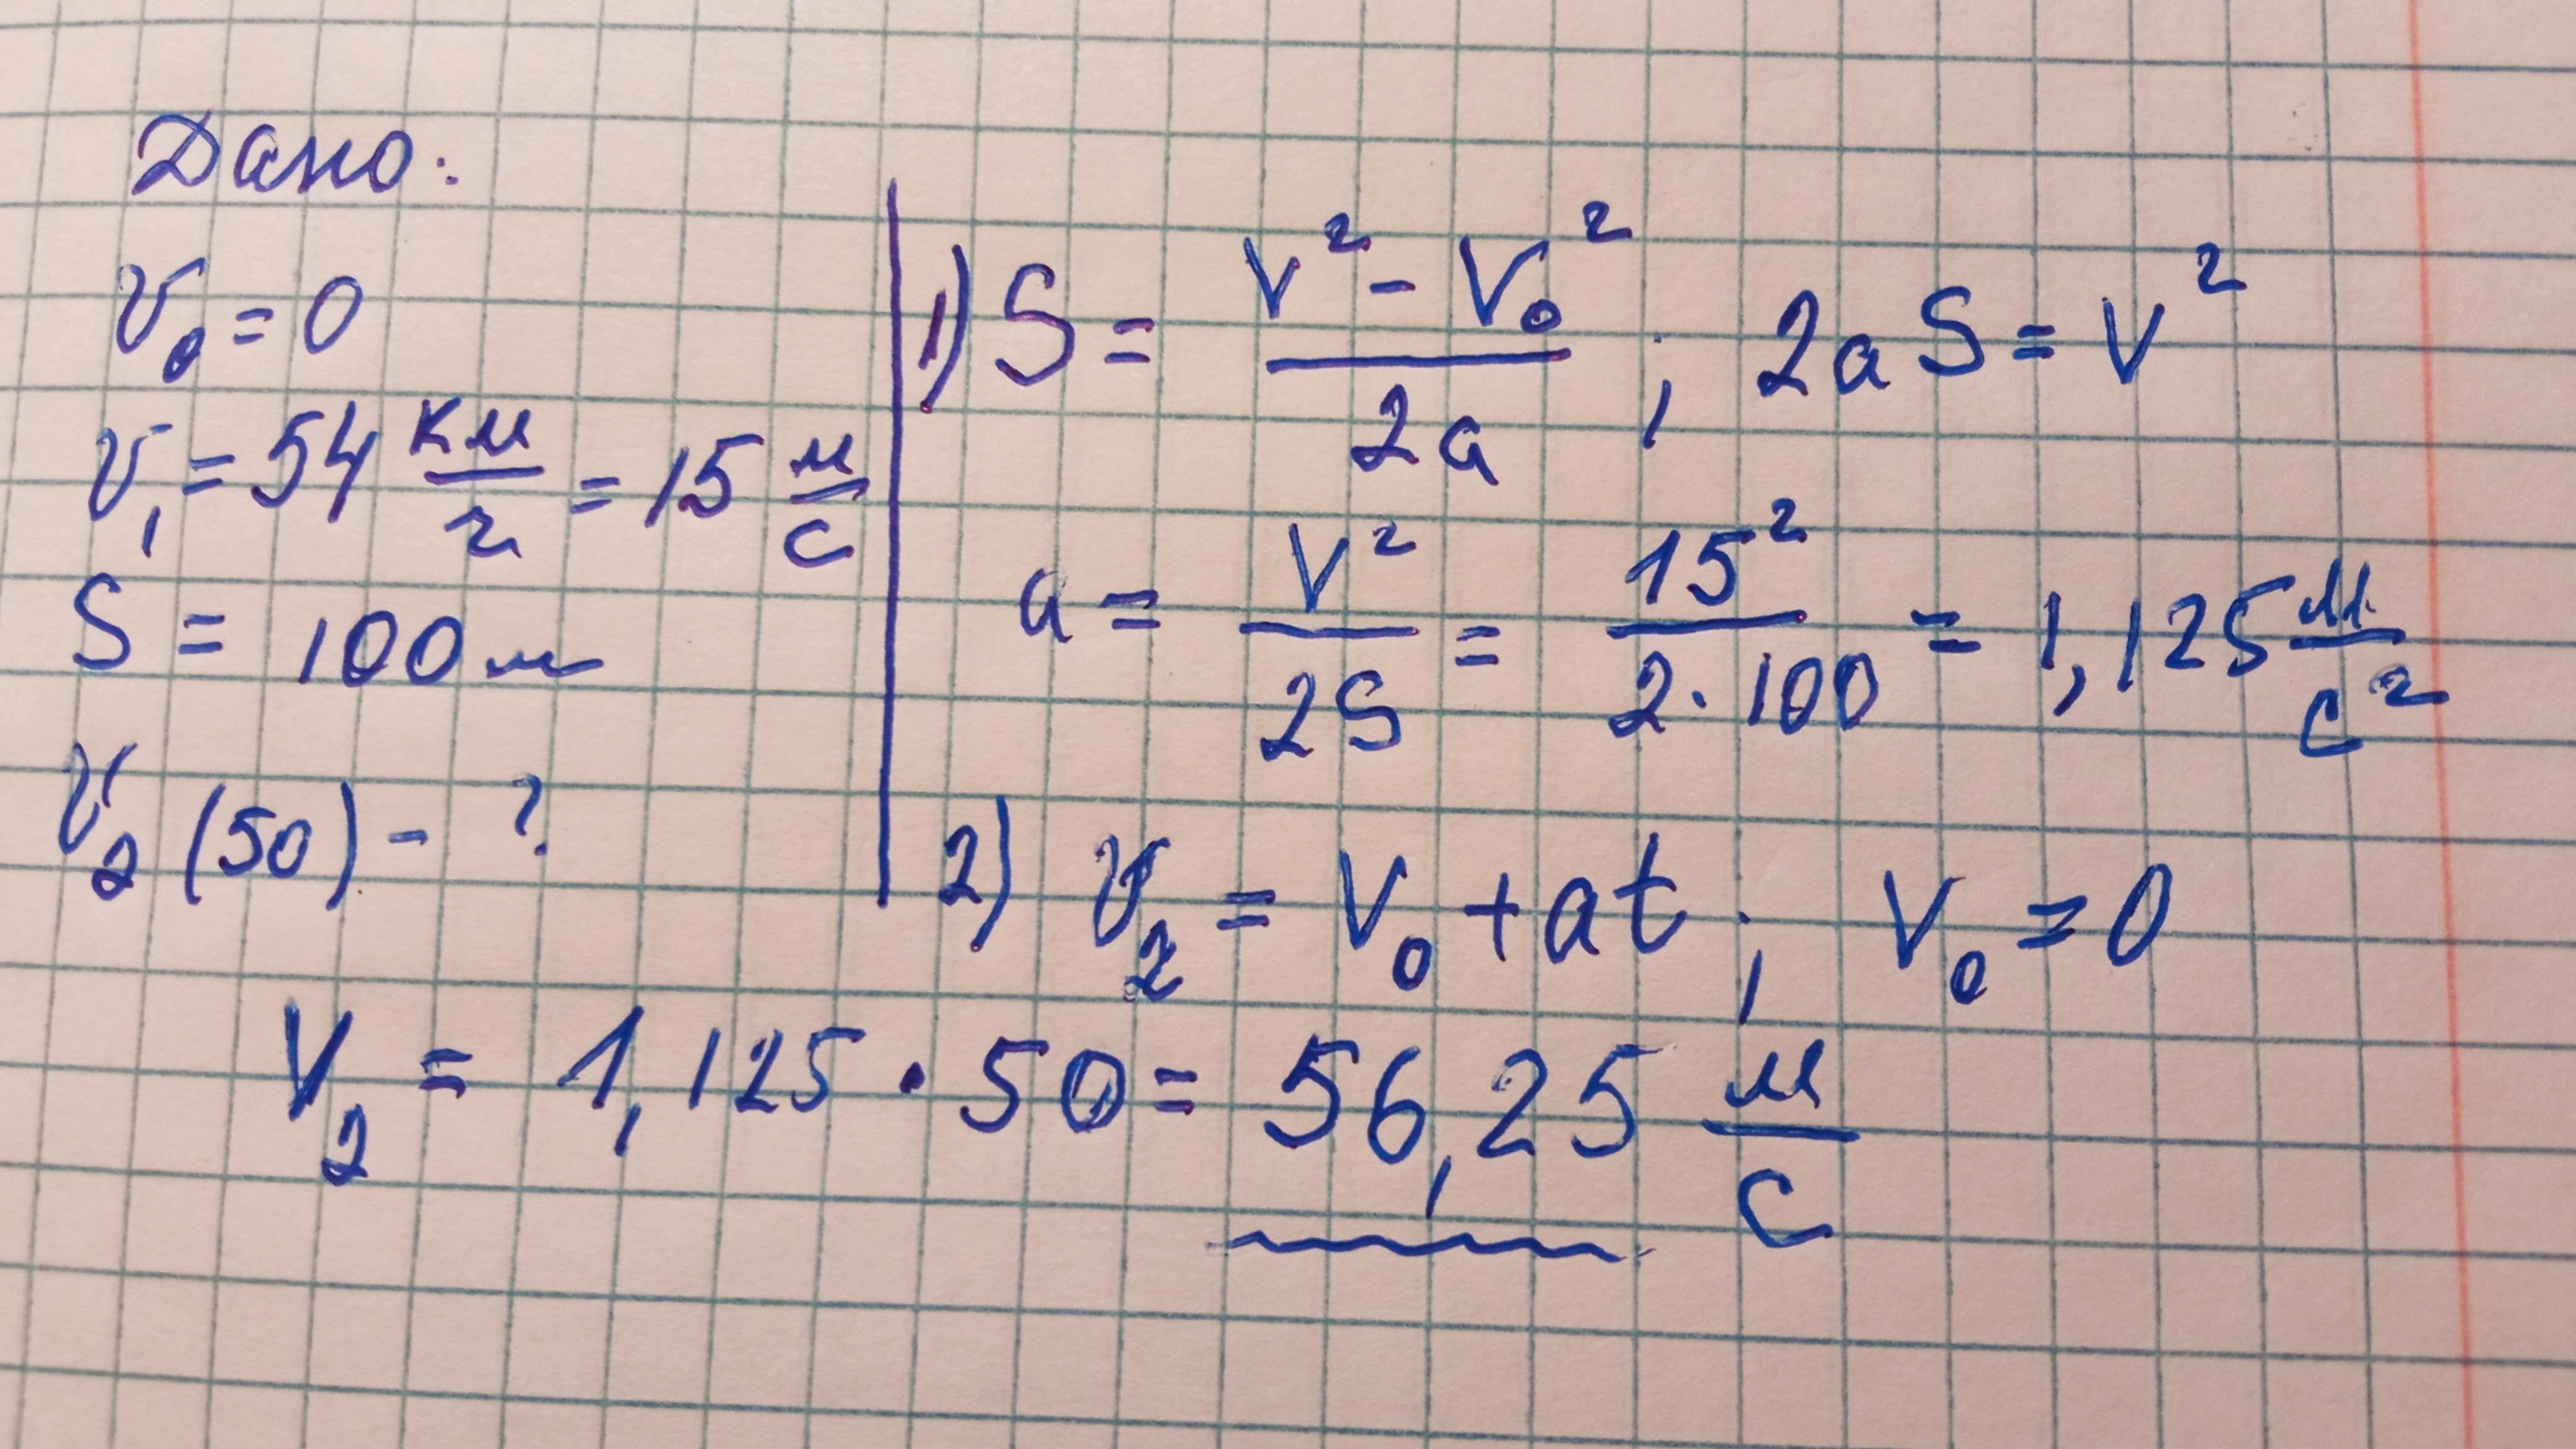 Дано:
v₀ = 0
v₁ = 54 км/г = 15 м/с
S = 100 м
v₂ (50) - ?
1) S = (v² - v₀²)/(2a) ; 2aS = v²
a = v²/(2S) = 15²/(2·100) = 1,125 м/с²
2) v₂ = v₀ + at ; v₀ = 0
v₂ = 1,125 · 50 = 56,25 м/с